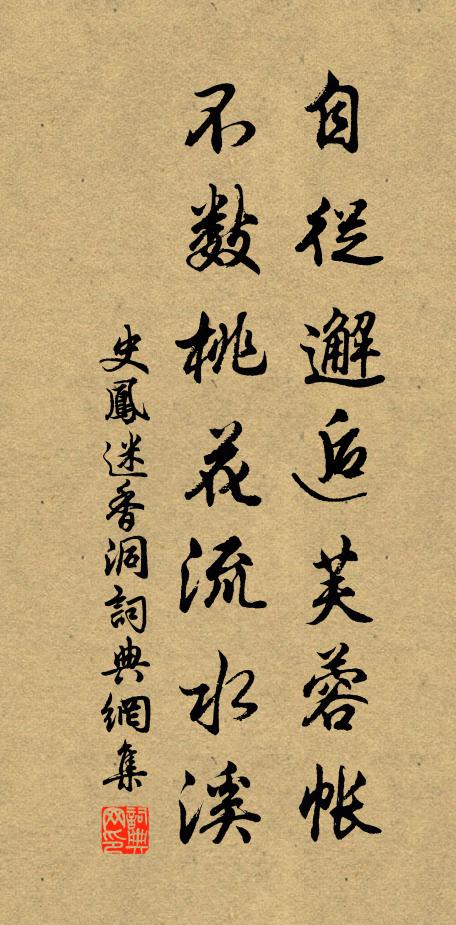 自從邂逅芙蓉帳
不数桃花流水溪
史鳳迷香洞詞典網集
詞典網印